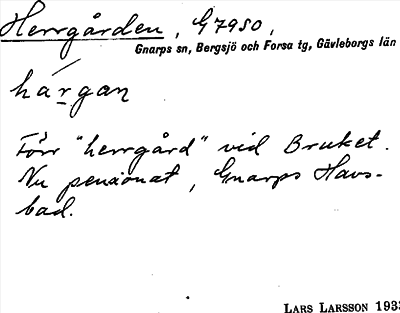 Herrgården, G7950,
Gnarps sn, Bergsjö och Forsa tg, Gävleborgs län
hárgan
Förr "herrgård" vid Bruket.
Nu pensionat, Gnarps Havs-
bad.
LARS LARSSON 1933